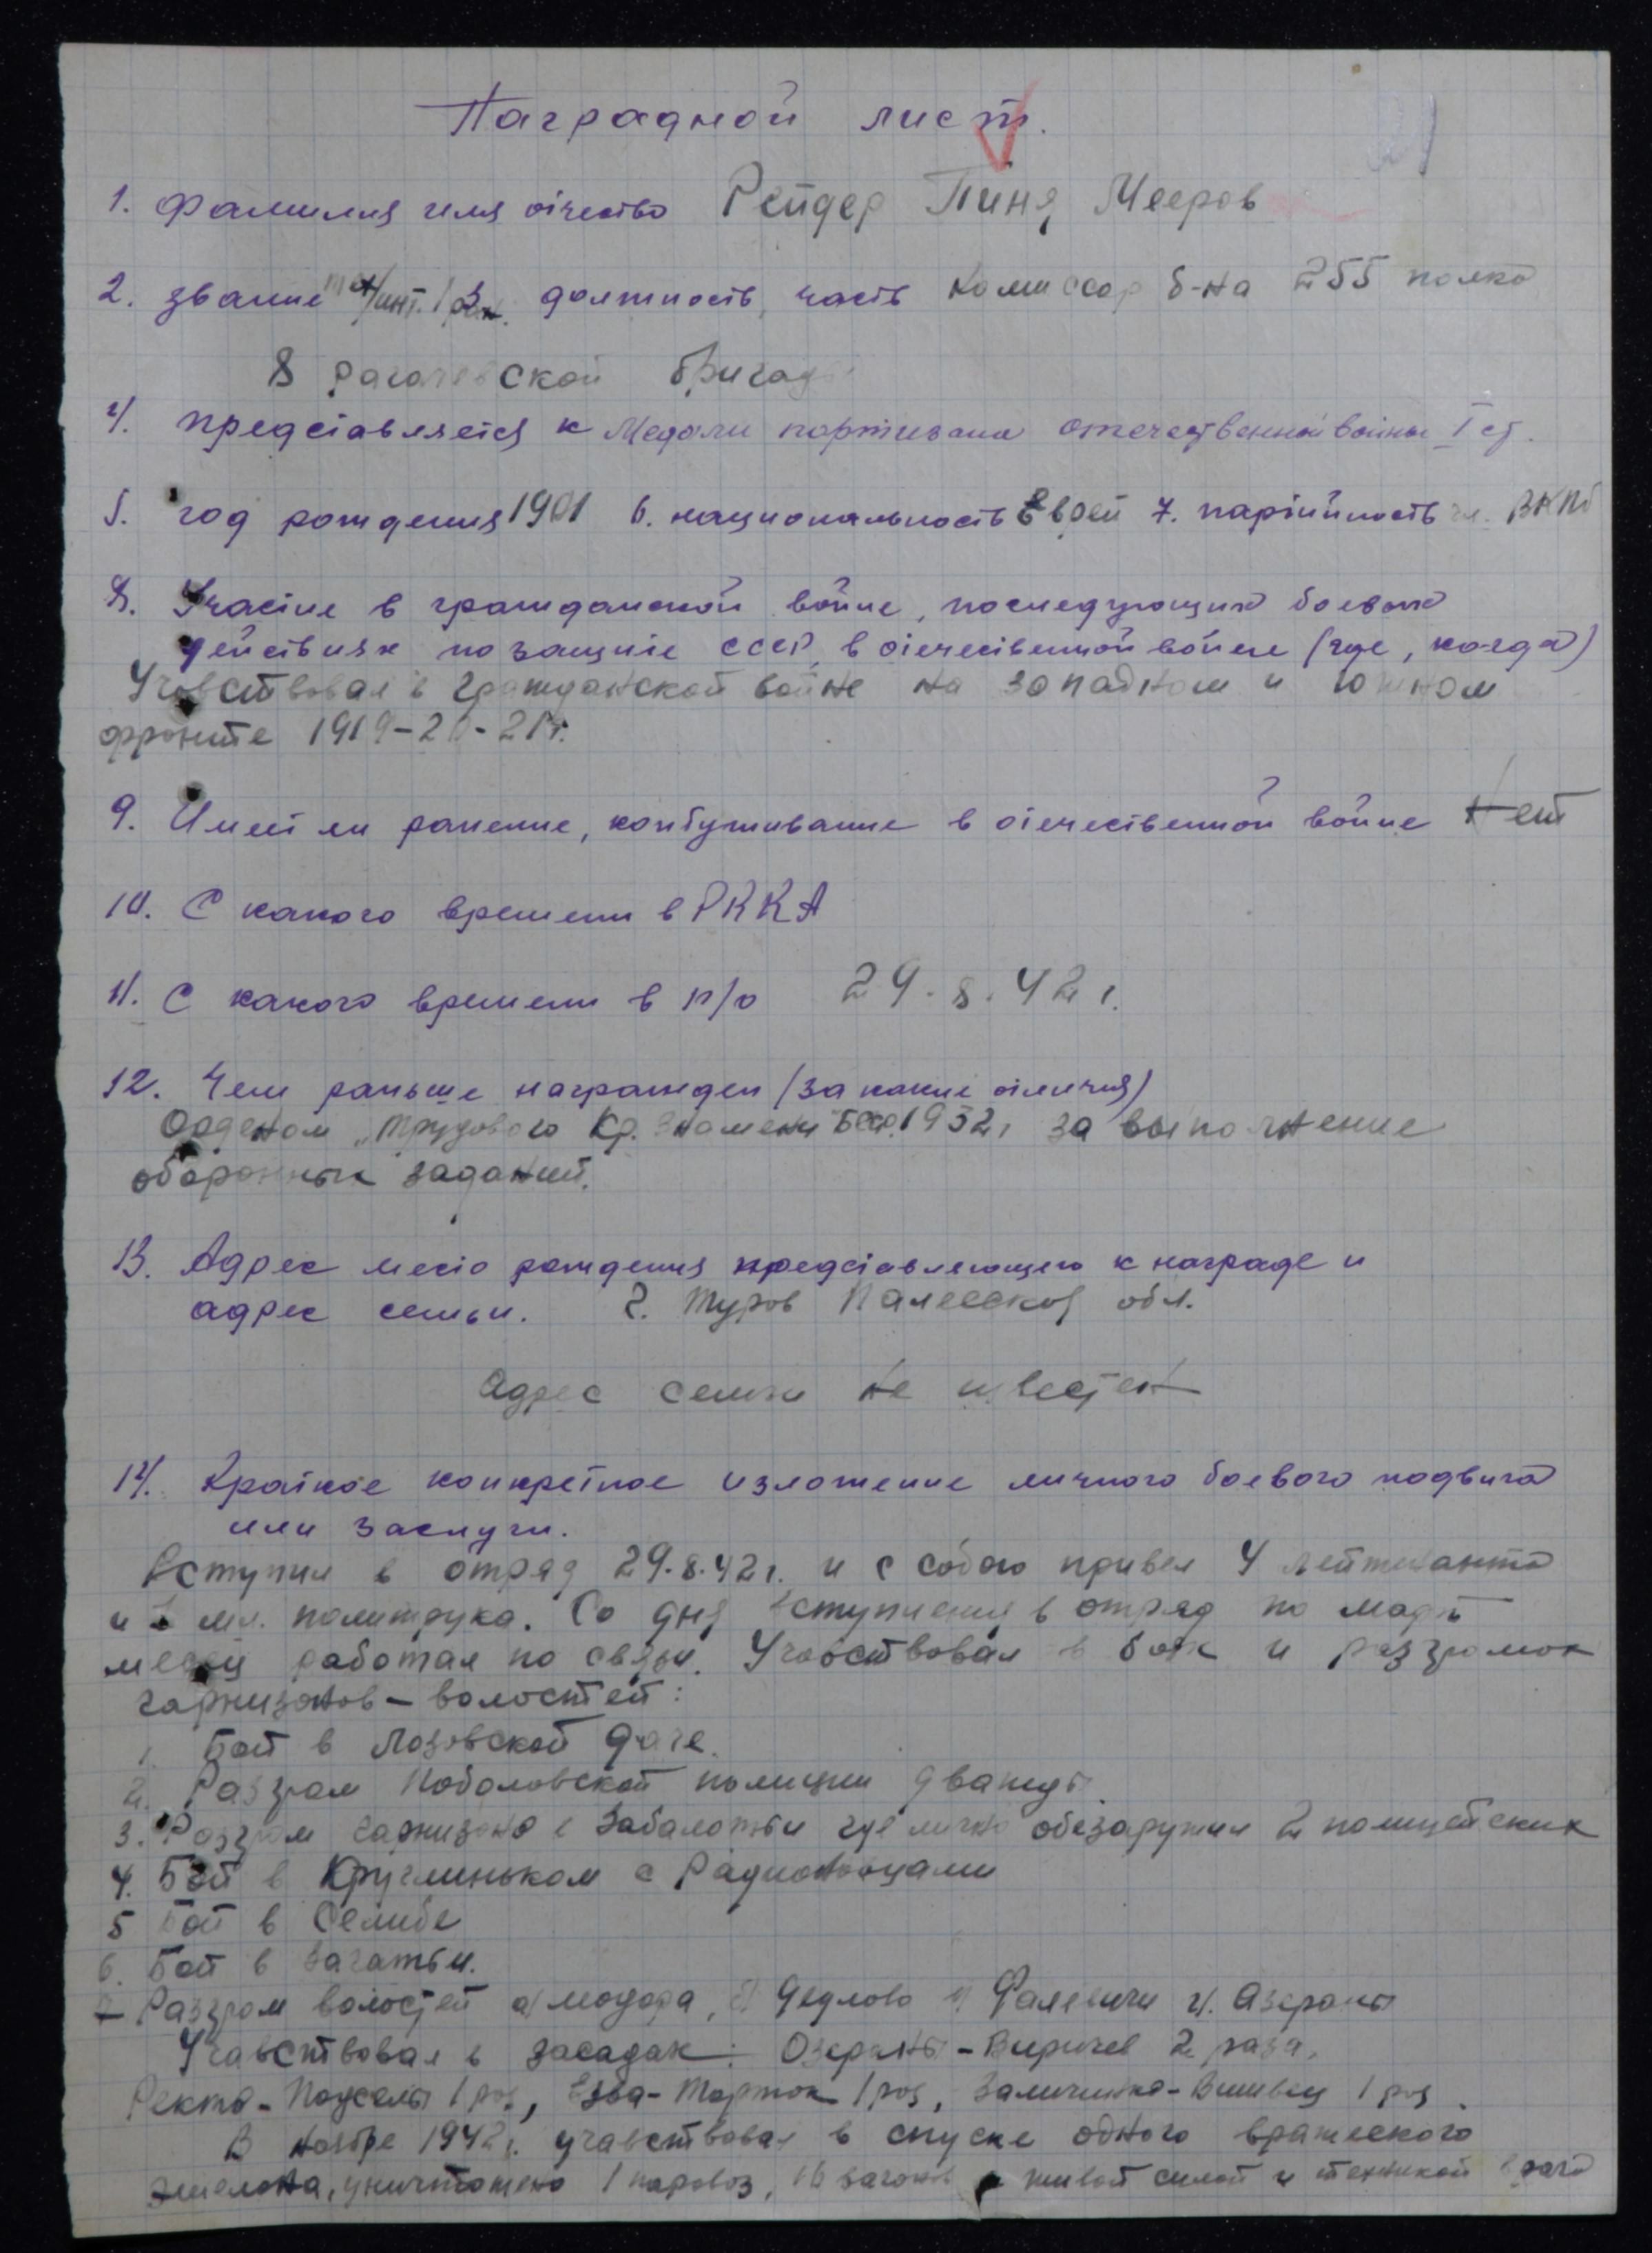 Наградной лист.
1. Фамилия имя отчество Рейдер Пиня Мееров
2. звание тех/инт. 1 должность, часть Комиссар б-на 255 полка
8 рагачевской бригады
4. представляется к Медали партизана отечественной войны I ст.
5. год рождения 1901 6. национальность Еврей 7. партийность чл. ВКПб
8. Участие в гражданской войне, последующих боевых
действиях по защите СССР, в отечественной войне (где, когда)
Учавствовал в гражданской войне на западном и южном
фронте 1919-20-21г.
9. Имеет ли ранение, контуживание в отечественной войне Нет
10. С какого времени в РККА
11. С какого времени в п/о 29.8.42 г.
12. Чем раньше награжден (за какие отличия)
Орденом „Трудового Кр. Знамени" БССР 1932г за выполнение
оборонных заданий.
13. Адрес место рождения представляющего к награде и
адрес семьи. г. Туров Палесской обл.
Адрес семьи не известен
14. Краткое конкретное изложение личного боевого подвига
или заслуги.
Вступил в отряд 29.8.42г. и с собою привел 4 лейтенанта
и мл. политрука. Со дня вступления в отряд по
месяц работал по связи. Учавствовал в боях и разгромах
гарнизонов - волостей:
1. Бой в Лозовской даче.
2. Разгром Коболовской полиции дважды
3. Разгром гарнизона в Заболотьи где лично обезаружил 2 полицейских
4. Бой в Круглиньком с
5 Бой в Селибе
6. Бой в Загатьи.
7 Разгром волостей а) модора, б) Дедлово в) Фалевичи г). Азераны
Учавствовал в засадах: Озераны - Виричев 2 раза,
Ректа - 1 раз, Езва - Тортон 1 раз, - Вишвец 1 раз.
В ноябре 1942г. учавствовал в спуске одного вражеского
эшелона, уничтожено 1 паровоз, 16 вагонов с живой силой и техникой врага